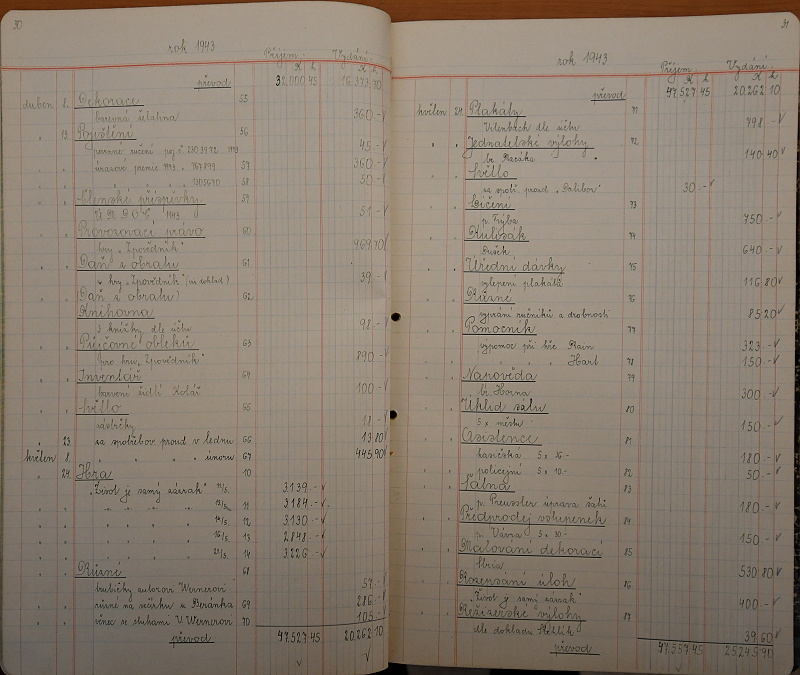 30
rok 1943
Příjem Vydání
K h K h
převod 32.000 45 16.373.70
duben 8. Dekorace 55
barevná želatina 360.-
" 13. Pojištění 56
45.-
úrazové premie 1943 " 767.899 57 360.-
" " " 58 50.-
Členské příspěvky 59
Ú.M.D.O.Č. 1943 51.-
Provozovací právo 60
hry "Zpovědník" 969.70
Daň z obratu 61
z hry "Zpovědník" 39.-
Daň z obratu 62
Knihovna
3 knížky dle účtu 98.-
Půjčovné obleků 63
pro hru "Zpovědník" 890.-
Inventář 64
barvení židlí Kolář 100.-
Světlo 65
18.-
" 23. za spotřebov. proud v lednu 66 13.80
květen 8. " " " únoru 67 445.90
" 24. Hra 10
"Život je samý zázrak" 3139.-
" " " " 11 3184.-
" " " " 12 3130.-
" " " " 13 2.848.-
" " " " 14 3226.-
Různé 68
autorovi Wernerovi 57.-
různé na večírku u Beránka 69 286.-
věnec se stuhami V. Wernerovi 70 105.-
převod 47.527.45 20.262.10
31
rok 1943
Příjem Vydání
K h K h
převod 47.527 45 20.262 10
květen 24. Plakáty 71
dle účtu 798.-
Jednatelské výlohy 72
br. 140.40
Světlo
za spotř. proud "Dalibor" 30.-
Líčení 73
p. Fryba 750.-
Kulisák 74
Dušek 640.-
Úřední dávky 75
vylepení plakátů 116.80
Různé 76
vyprání ručníků a drobnosti 85.20
Pomocník 77
výpomoce při hře 323.-
Hart 78 150.-
Nápověda 79
br. Horna 300.-
Úklid sálu 80
5 x městu 150.-
Asistence 81
hasičská 5 x 36.- 180.-
policejní 5 x 10.- 82 50.-
Šatna 83
p. Preussler úprava šatí 180.-
Předprodej vstupenek 84
p. Vávra 5 x 30.- 150.-
Malování dekorací 85
530.80
Rozepsání úloh 86
"Život je samý zázrak" 400.-
Režisérské výlohy 87
dle dokladu 39.60
převod 47.557.45 25.245.90